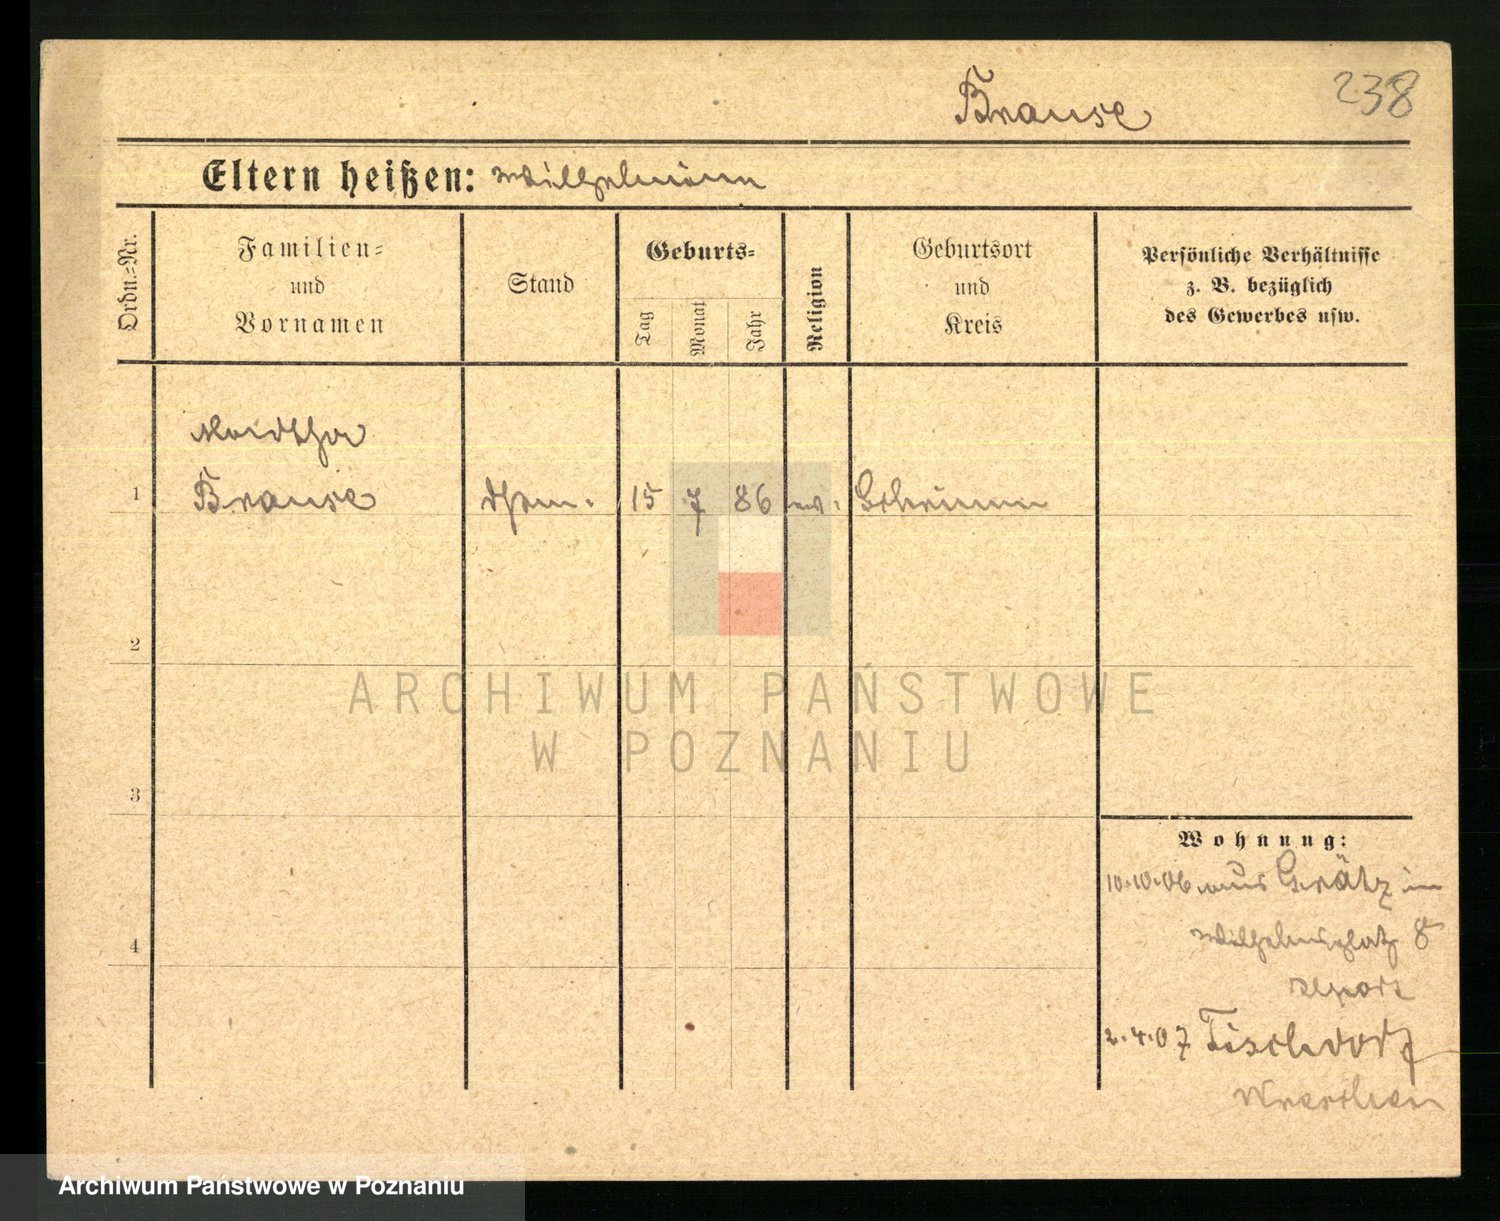 Brause
238
Eltern heißen: Wilhelmine
Ordn.=Nr.
Familien=
und
Vornamen
Stand
Geburts=
Tag
Monat
Jahr
Religion
Geburtsort
und
Kreis
Persönliche Verhältnisse
z. B. bezüglich
des Gewerbes usw.
Martha
1 Brause 15 7 86 ev. Schrimm
2
3
4
Wohnung:
10.10.06 aus Grätz in
Wilhelmsplatz 8
2.4.07 Tischdorf
Wreschen
ARCHIWUM PAŃSTWOWE
W POZNANIU
Archiwum Państwowe w Poznaniu